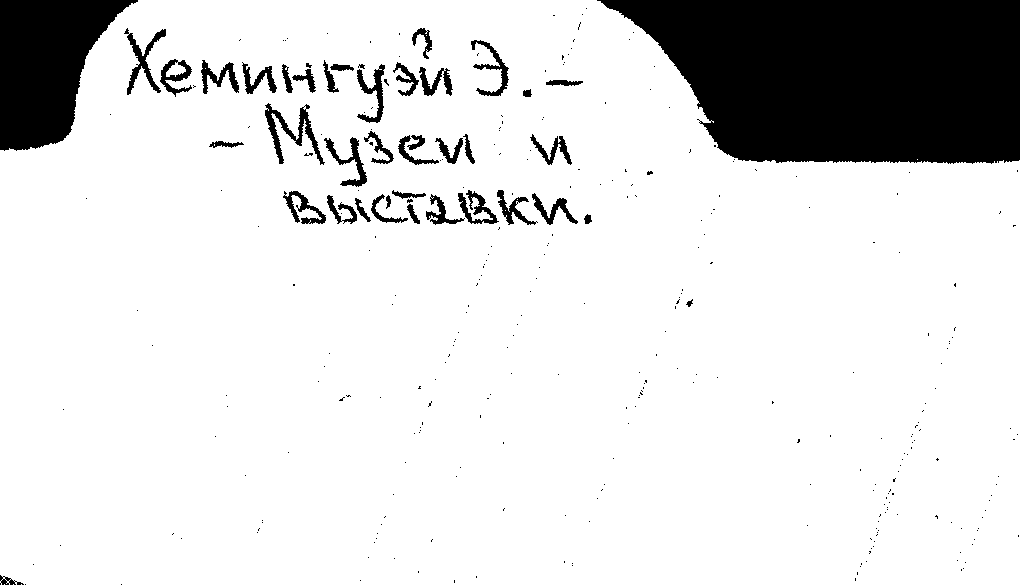 Хемингуэй Э. –
– Музеи и
выставки.